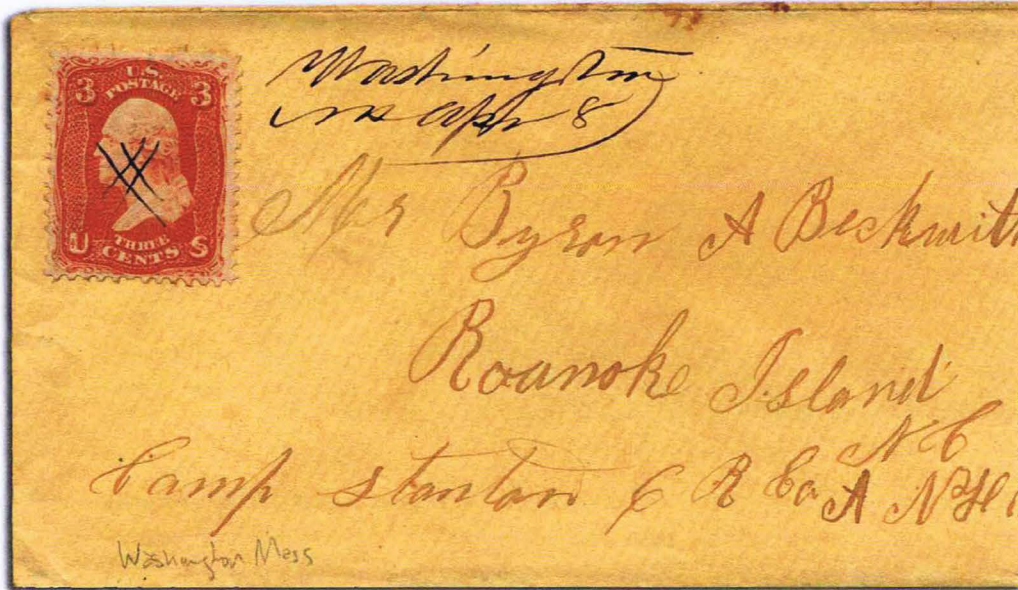 3 U.S. 3
POSTAGE
THREE
U CENTS S
Washington
Apr 8
Mr Byron A Beckwith
Roanoke Island
N C
Camp Stanton 6 R Co A N H
Washington Mass